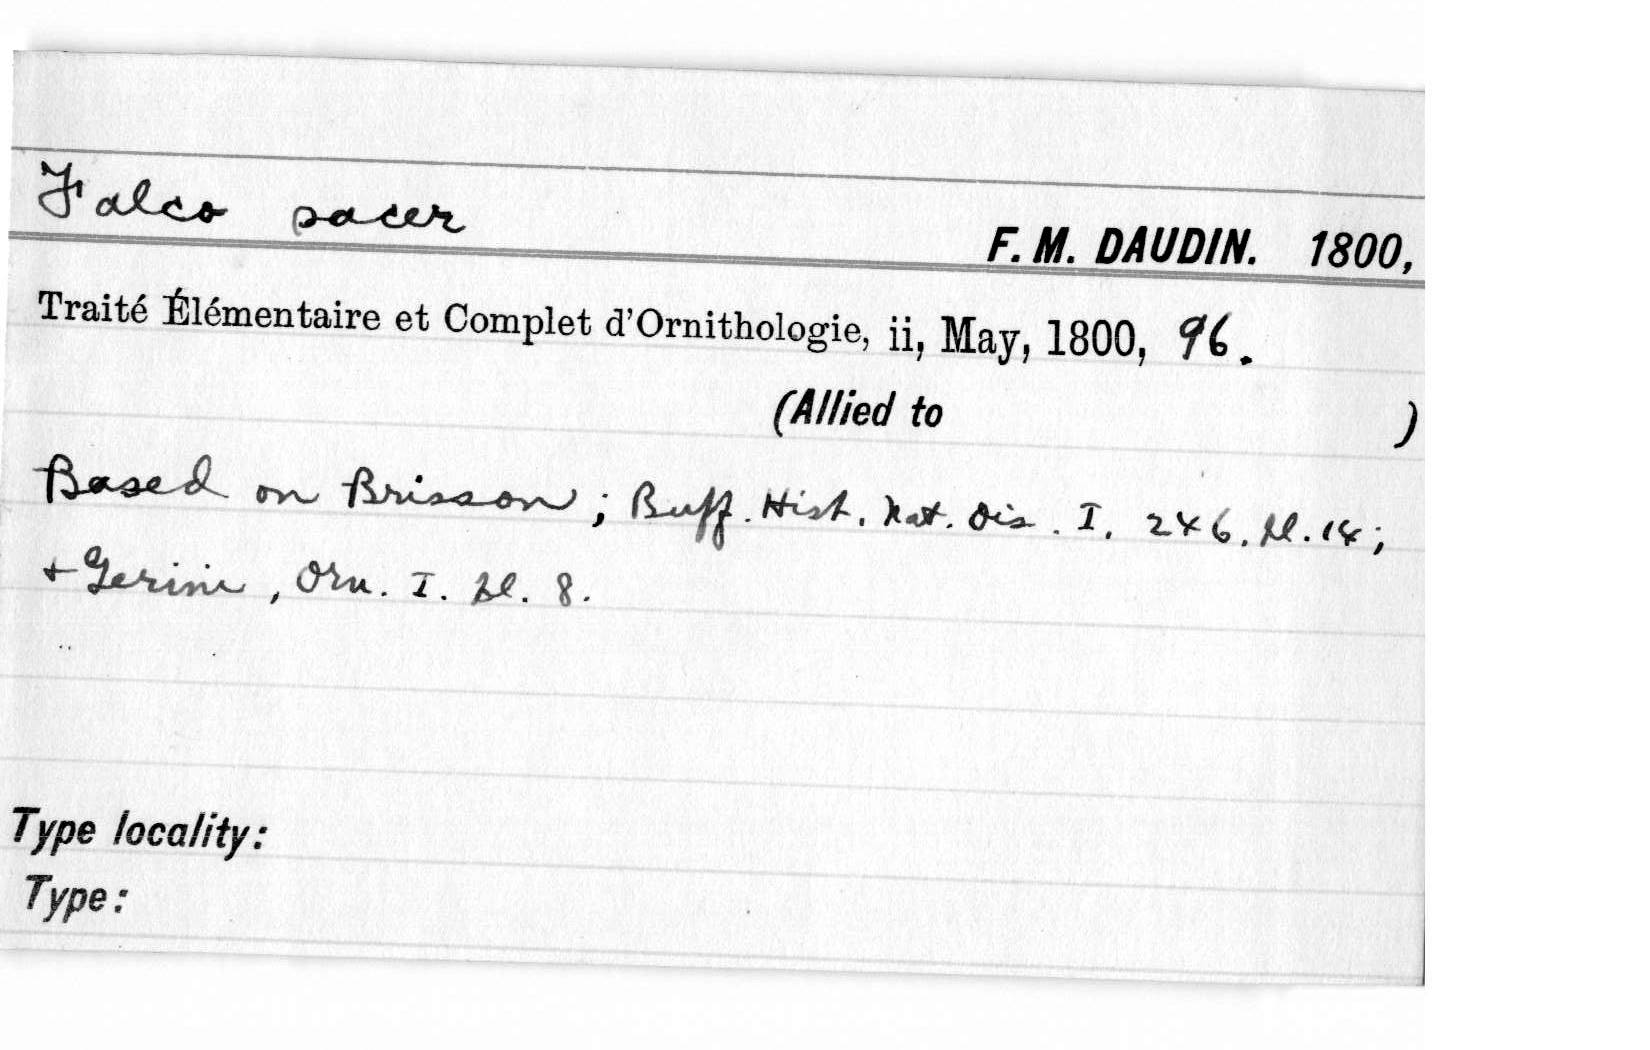 Falco sacer
F. M. DAUDIN. 1800,
Traité Élémentaire et Complet d'Ornithologie, ii, May, 1800, 96.
(Allied to )
Based on Brisson; Buff. Hist. Nat. Ois. I, 246, pl. 14;
+ Gerini, Orn. I. pl. 8.
Type locality:
Type: